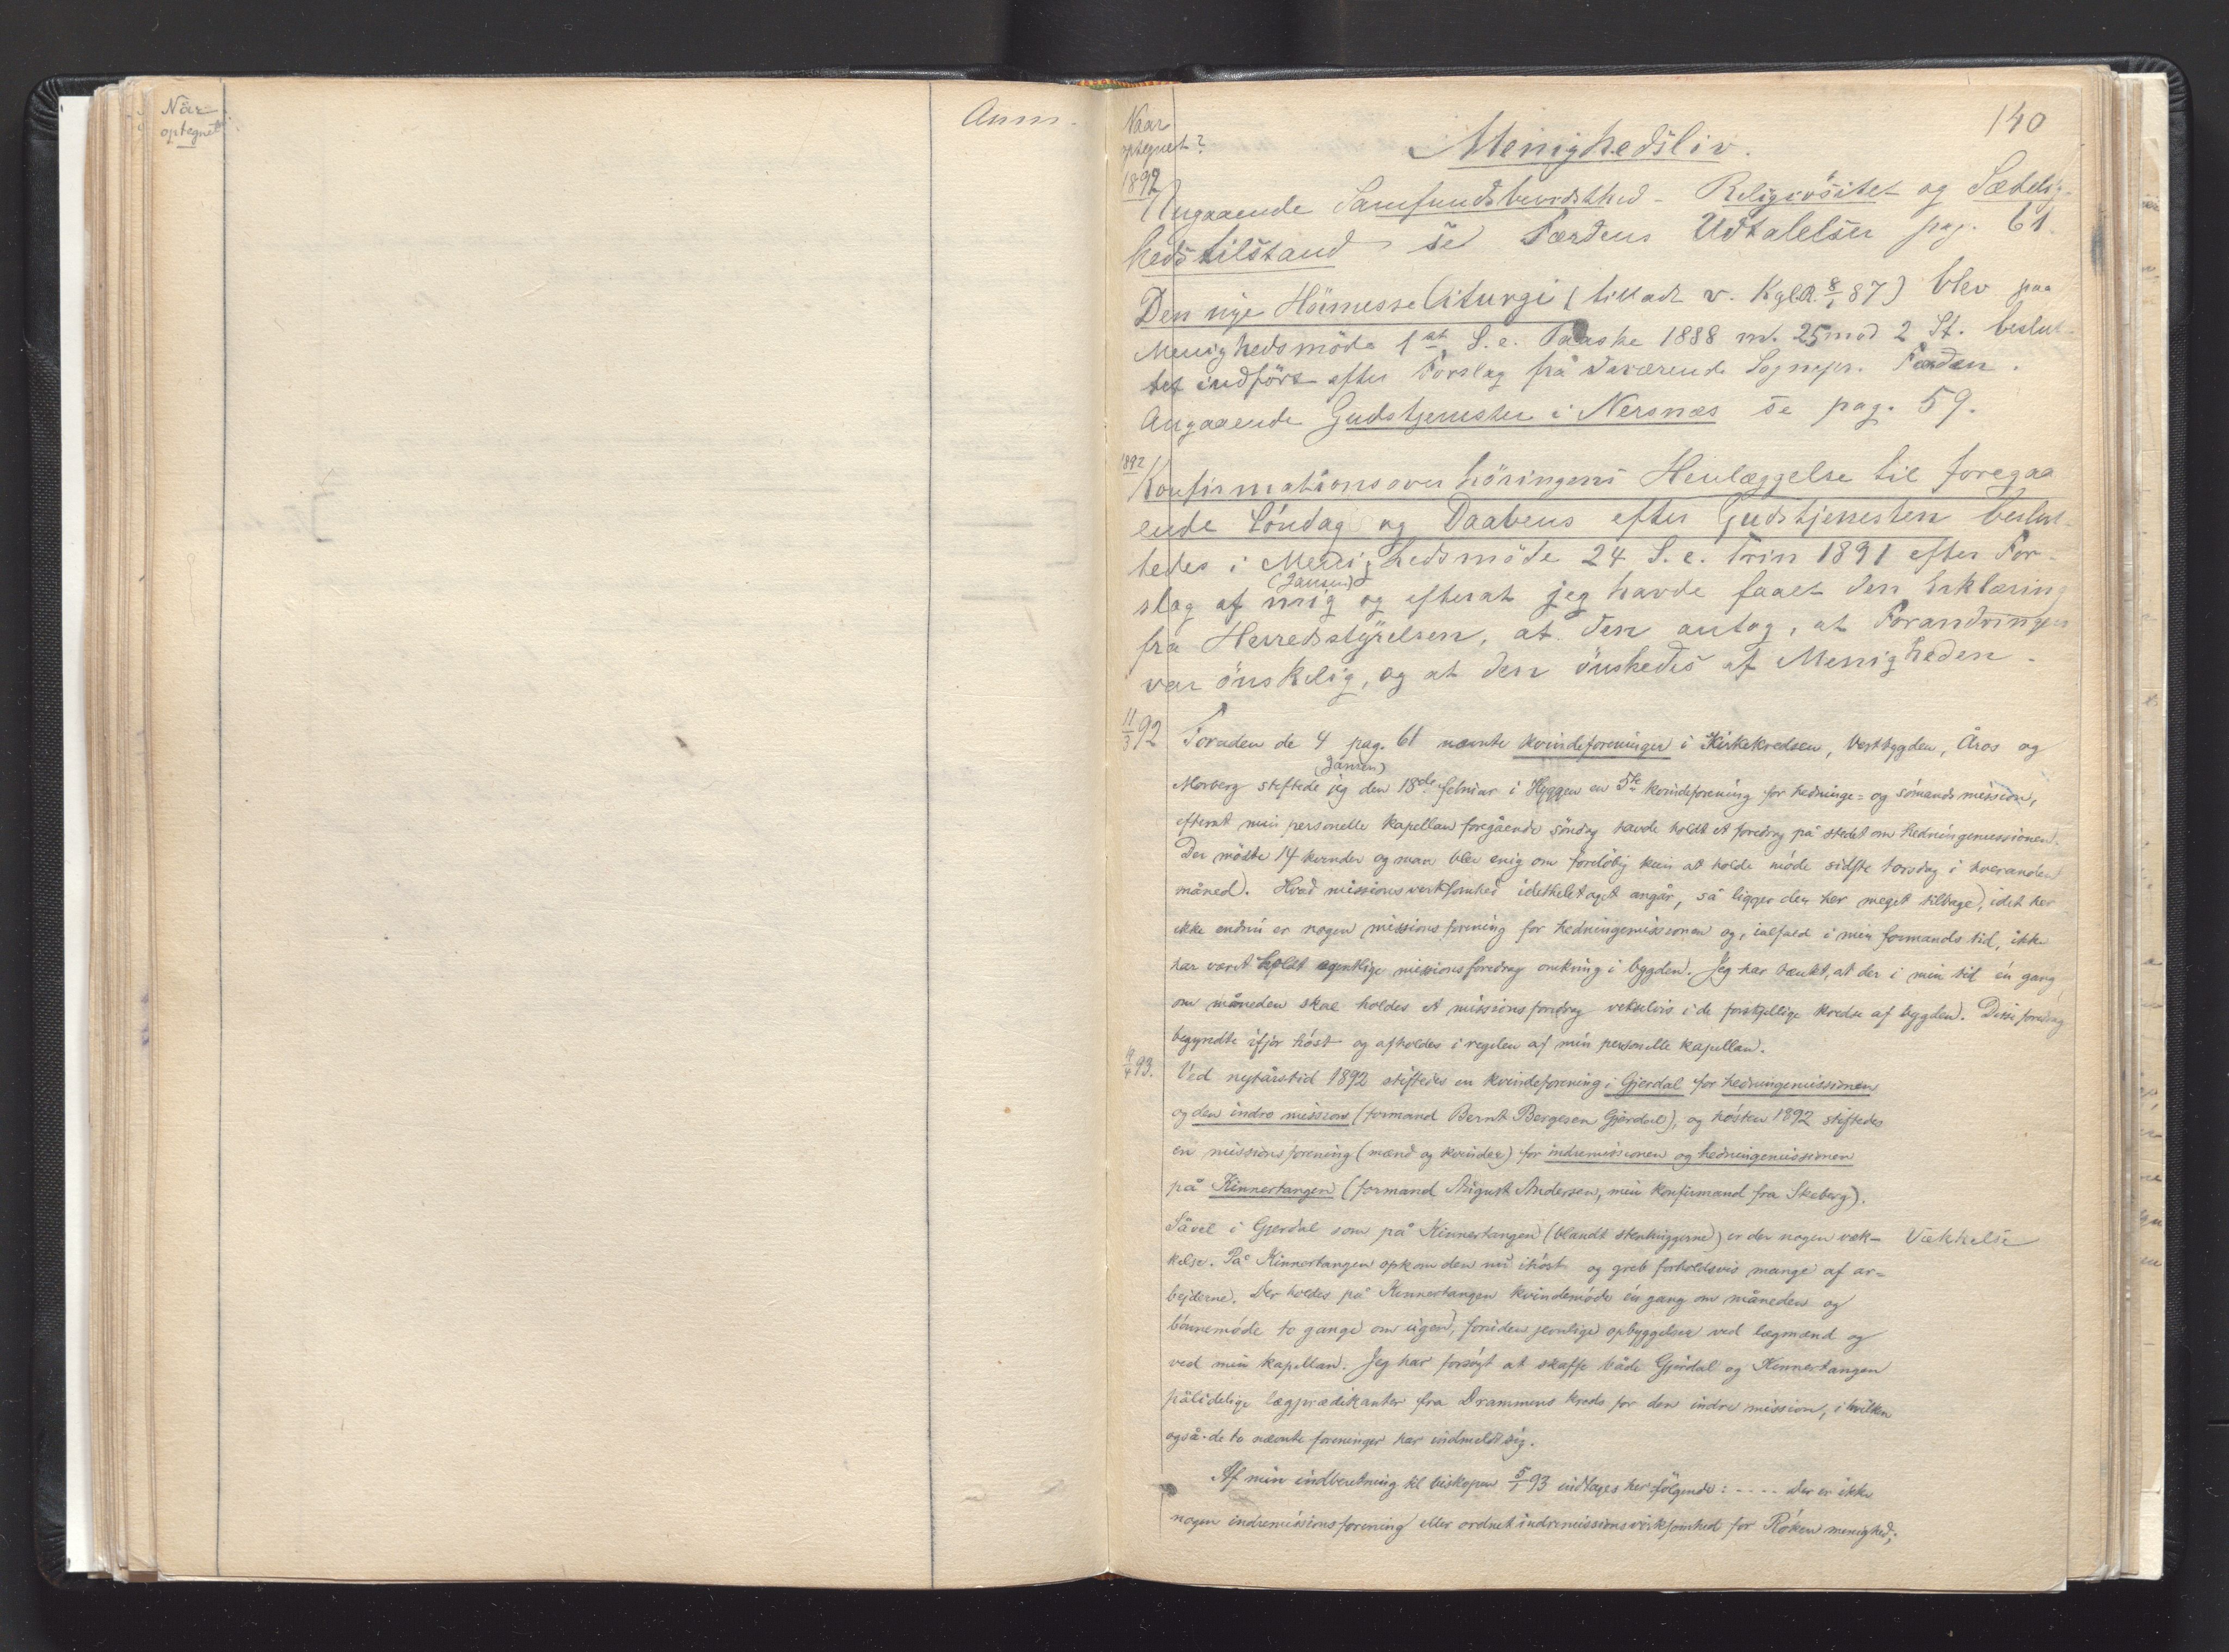 Når
optegnet
Anm.
Naar
optegnet?
140
Menighedsliv.
1892
Angaaende Samfundsbevidsthed - Religiøsitet og Sædelig-
hedstilstand se Færdens Udtalelser pag. 61.
Den nye Høimesseliturgi (tilladt v. Kgl.R. 8/1 87) blev paa
Menighedsmöde 1st S. e. Paaske 1888 m. 25 mod 2 St. beslut-
tet indført efter Forslag frå daværende Sognepr. Færden.
Angaaende Gudstjenester i Nersnæs se pag. 59.
1892
Konfirmationsoverhöringens Henlæggelse til foregaa
ende Söndag og Daabens efter Gudstjenesten beslut-
tedes i Menighedsmöde 24 S. e. Trin 1891 efter For-
(Jansen)
slag af mig og efterat jeg havde faaet den Erklæring
fra Herredsstyrelsen, at den antog, at Forandringen
var önskelig, og at den önskedes af Menigheden.
11/3 92
Foruden de 4 pag. 61 nævnte kvindeforeninger i Kirkekredsen, Vestbygden, Åros og
(Jansen)
Morberg stiftede jeg den 18de februar i Hyggen en 5te kvindeforening for hedninge- og sömandsmission,
efterat min personelle kapellan foregående söndag havde holdt et foredrag på stedet om Hedningemissionen.
Der mödte 14 kvinder og man blev enig om foreløbig kun at holde möde sidste torsdag i hveranden
måned. Hvad missionsverksomhed idetheletaget angår, så ligger den her meget tilbage, idet her
ikke endnu er nogen missionsforening for hedningemissionen og, ialfald i min formands tid, ikke
har været holdt egentlige missionsforedrag omkring i bygden. Jeg har tænkt, at der i min tid én gang
om måneden skal holdes et missionsforedrag vekselvis i de forskjellige kredse af bygden. Disse foredrag
begyndte ifjor höst og afholdes i regelen af min personelle kapellan.
4 93.
Ved nytårstid 1892 stiftedes en kvindeforening i Gjerdal for hedningemissionen
og den indre mission (formand Bernt Borgesen Gjerdal), og hösten 1892 stiftedes
en missionsforening (mænd og kvinder) for indremissionen og hedningemissionen
på Kinnertangen (formand August Andersen, min konfirmand fra Skeberg).
Såvel i Gjerdal som på Kinnertangen (blandt stenhuggerne) er der nogen væk- Vækkelse
kelse. På Kinnertangen opkom den nu ihöst og greb forholdsvis mange af ar-
bejderne. Der holdes på Kinnertangen kvindemöde én gang om måneden og
bönnemöde to gange om ugen, foruden jevnlige opbyggelser ved lægmænd og
ved min kapellan. Jeg har forsögt at skaffe både Gjerdal og Kinnertangen
pålidelige lægprædikanter fra Drammens kreds for den indre mission, i hvilken
også de to nævnte foreninger har indmeldt sig.
Af min indberetning til biskopen 5/1 93 indtages her fölgende: - - - - Der er ikke
nogen indremissionsforening eller ordnet indremissionsvirksomhed for Röken menighed;